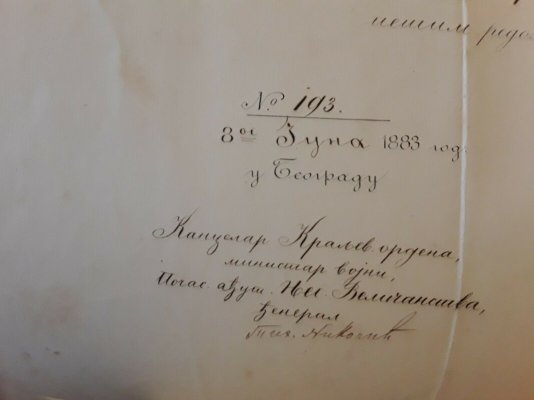 нешим редо
No 193.
8ог Јуна 1883 год.
у Београду
Канцелар Краљев. ордена,
министар војни,
Почас. ађут. Њег. Величанства,
ђенерал
Тих. Николић